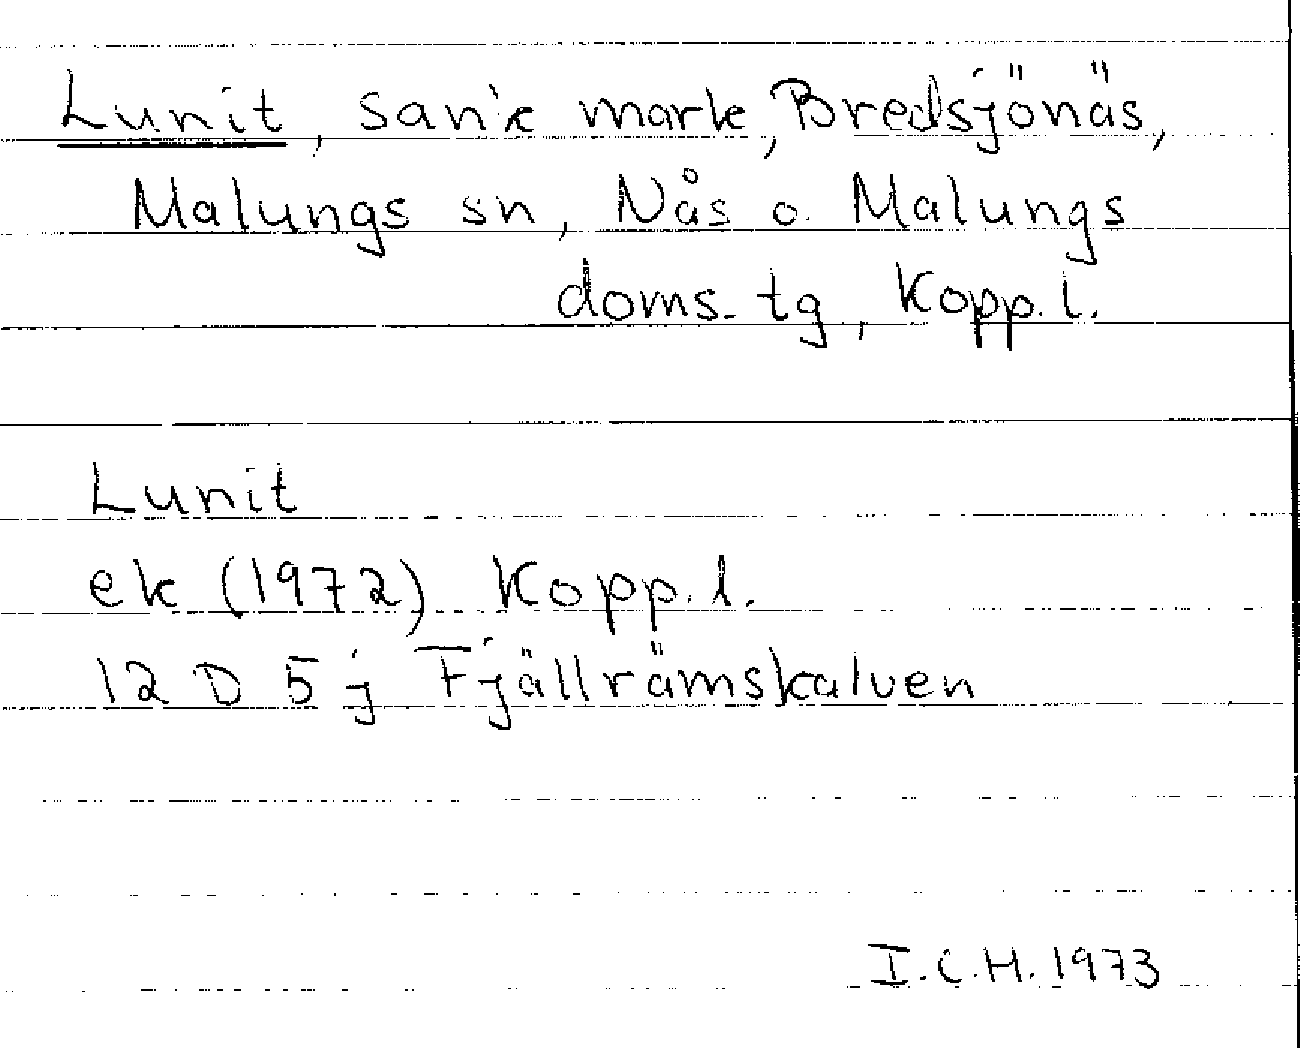 Lunit, sank mark, Bredsjönäs,
Malungs sn, Nås o. Malungs
doms. tg, Kopp. l.
Lunit
ek (1972) Kopp. l.
12 D 5 j Fjällrämskalven
I.C.H. 1973